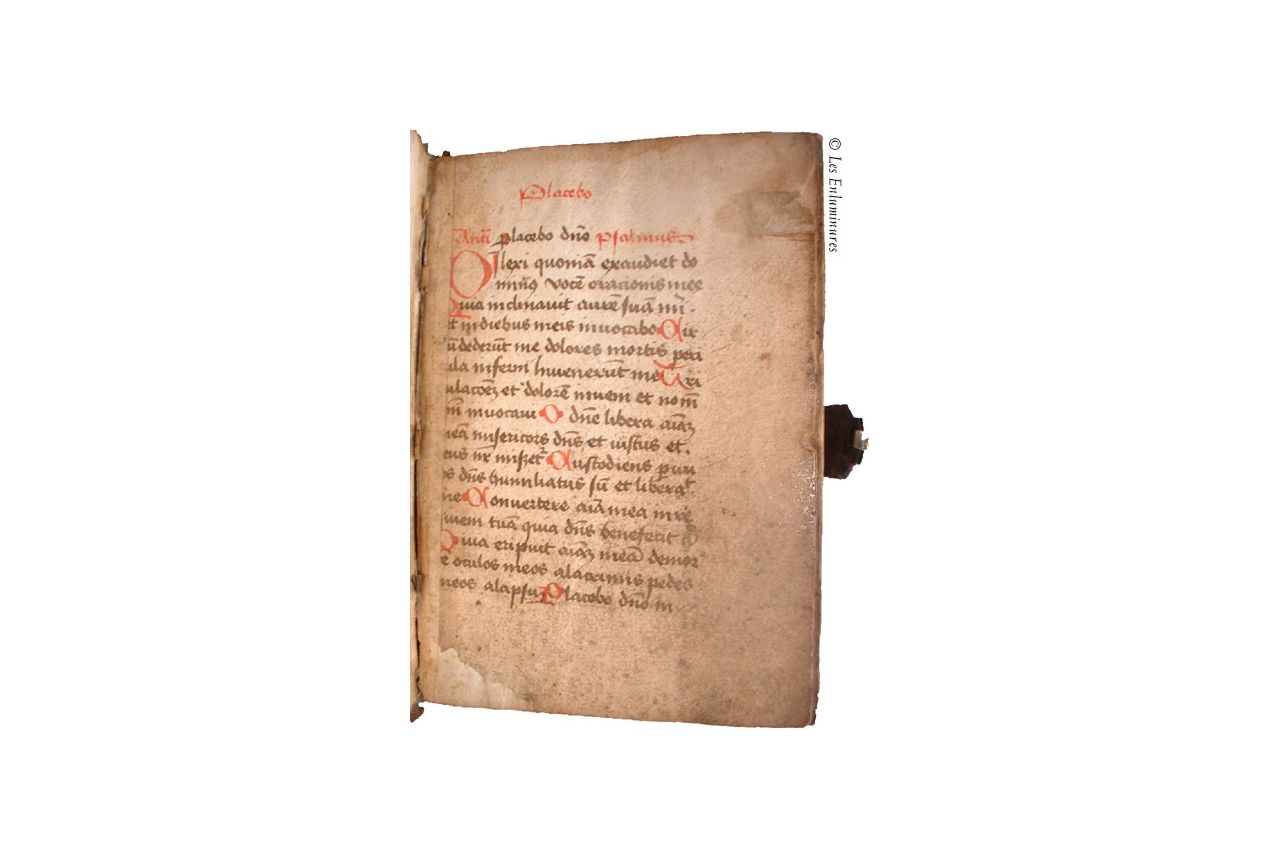 Placebo
Anti placebo dn̄o psalmus
Dilexi quoniā exaudiet do
minꝰ vocē oracionis mee
Quia inclinavit aurē suā m̄i
et in diebus meis invocabo Cir
cū dederūt me dolores mortis peri
cula inferni Invenerūt me Tri
bulacōeȝ et dolorē inveni et nom̄
dn̄i invocavi O dn̄e libera aīaȝ
meā misericors dn̄s et iustus et
deus nr̄ miseretʳ Custodiens parvu
los dn̄s humiliatus sū et liberaᵗ
me Convertere aīa mea in re
quiem tuā quia dn̄s benefecit t
Quia eripuit aīaȝ meā de mor
te oculos meos a lacrimis pedes
meos a lapsu Placebo dn̄o in
© Les Enluminures